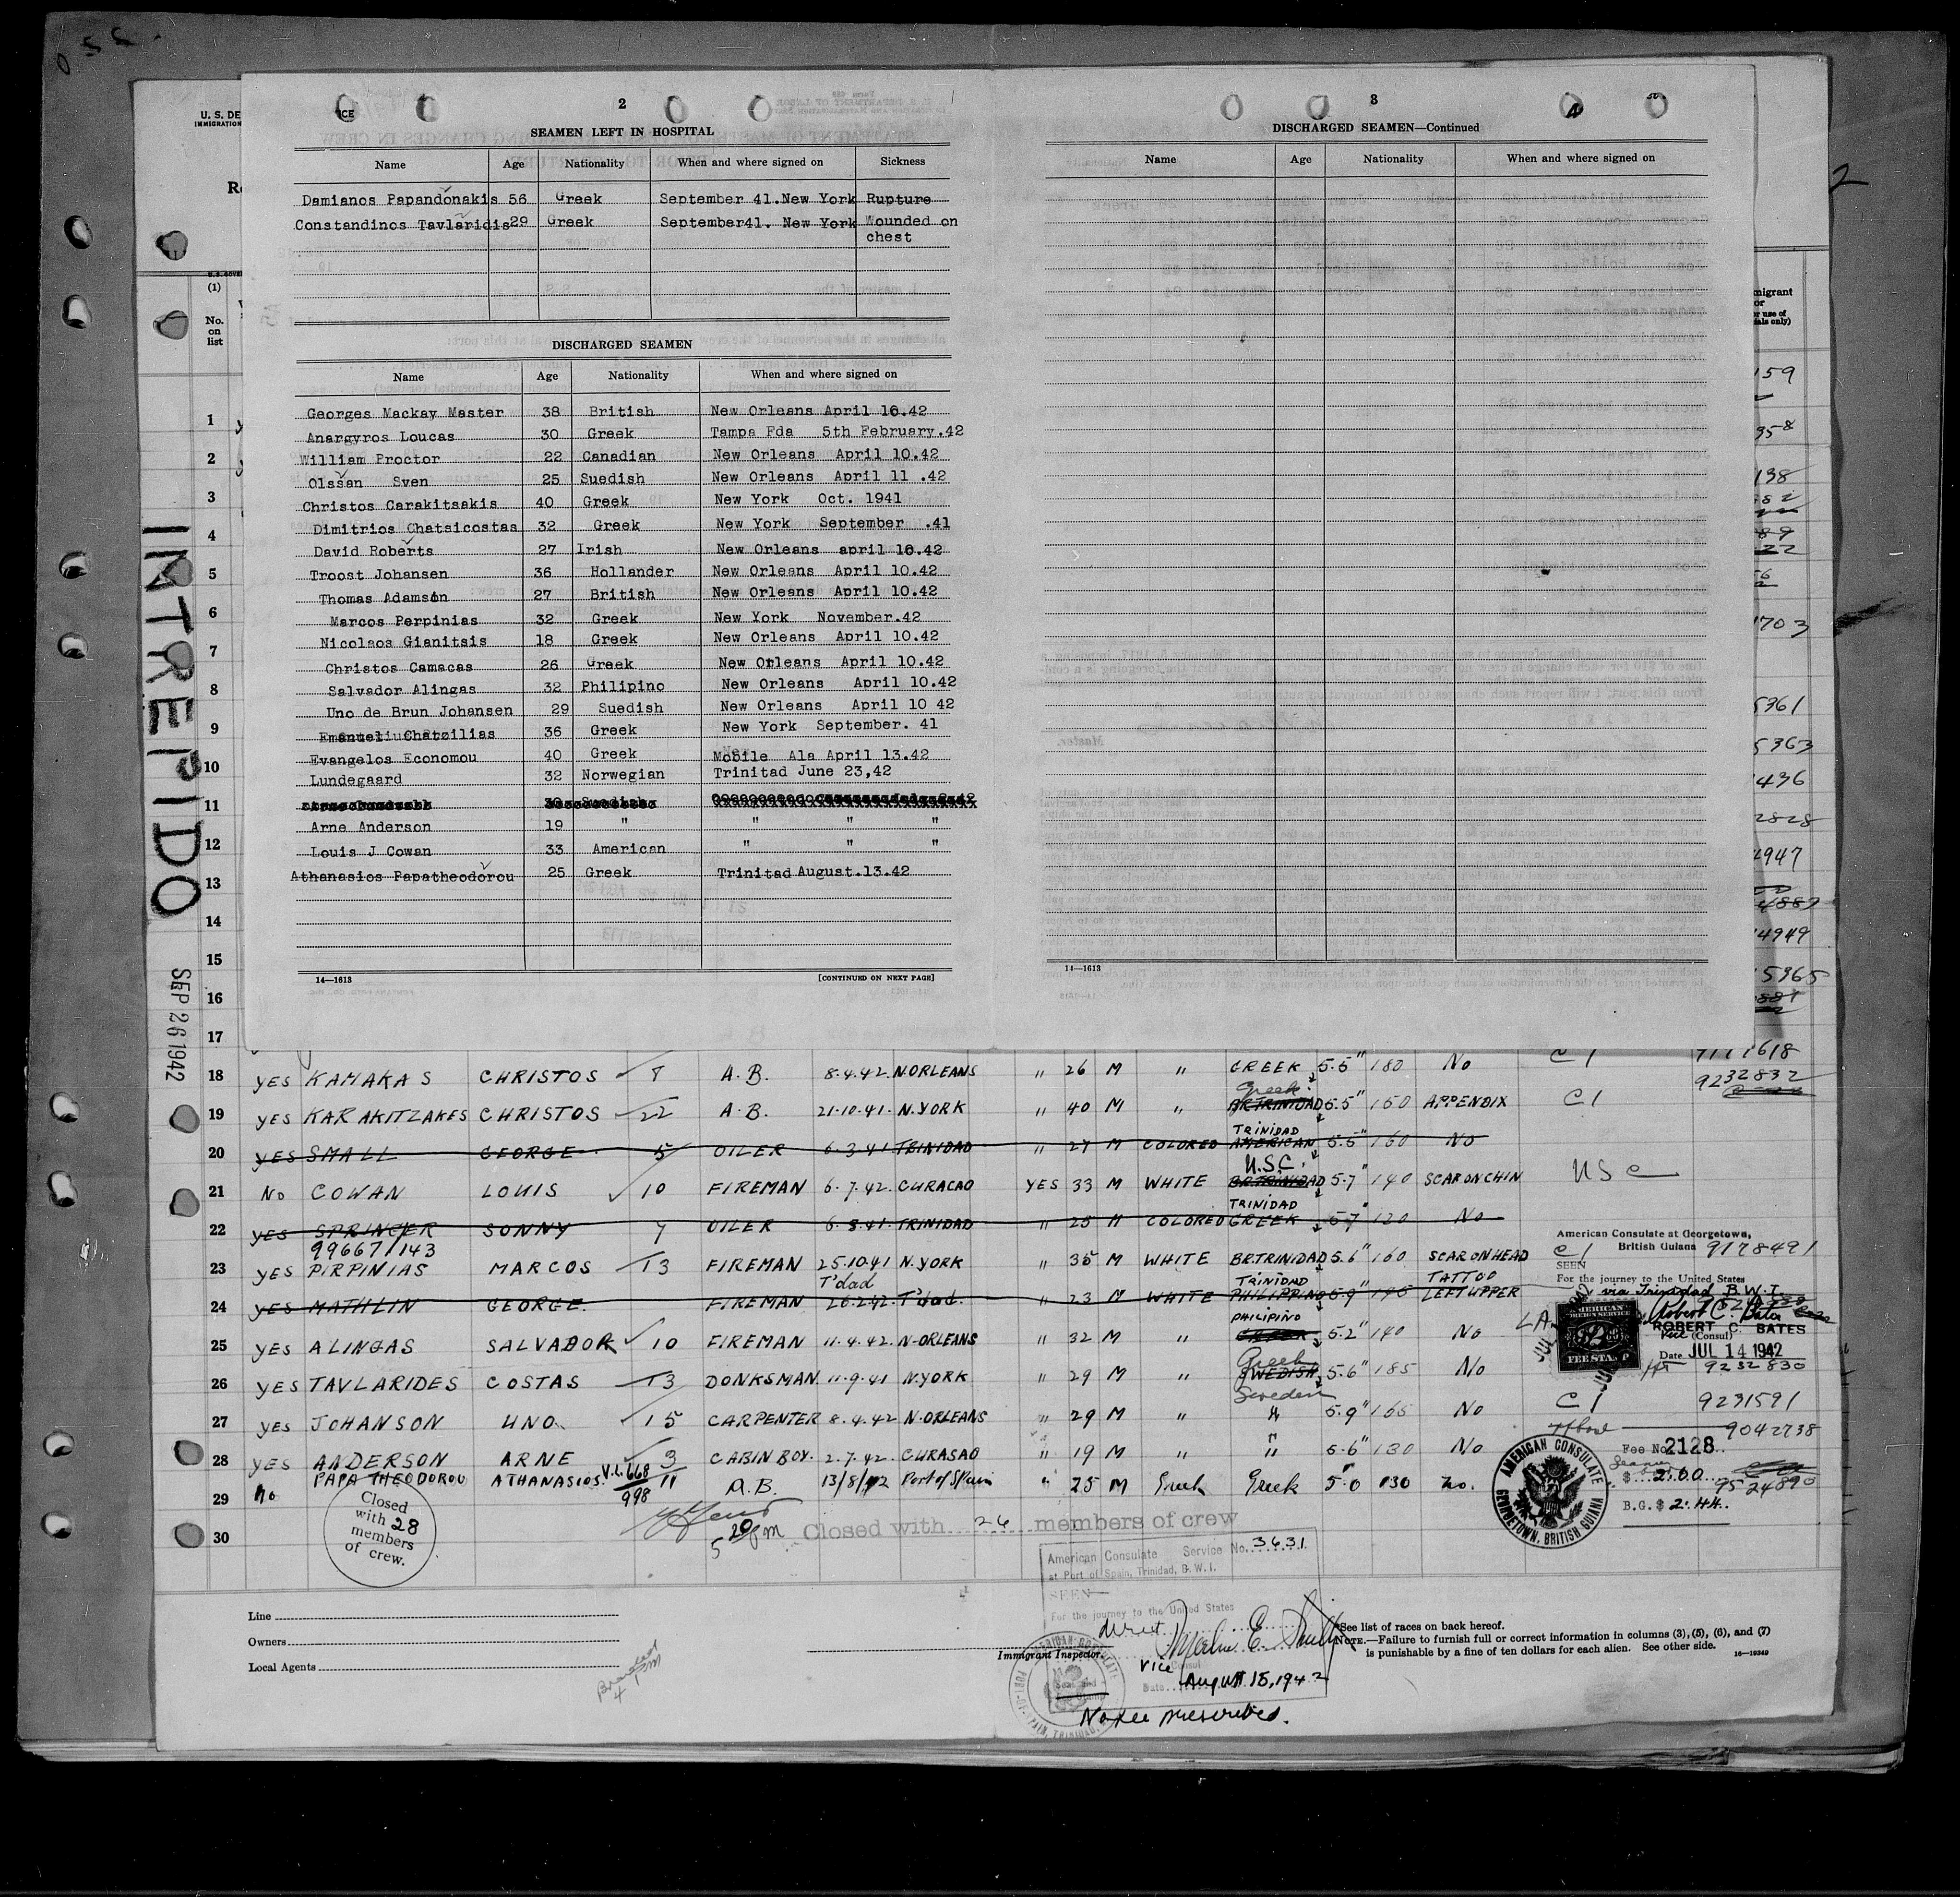 2
SEAMEN LEFT IN HOSPITAL
Name Age Nationality When and where signed on Sickness
Damianos Papandonakis 56 Greek September 41.New York Rupture
Constandinos Tavlaridis 29 Greek September41. New York Wounded on
chest
DISCHARGED SEAMEN
Name Age Nationality When and where signed on
Georges Mackay Master 38 British New Orleans April 10.42
Anargyros Loucas 30 Greek Tampa Fda 5th February.42
William Proctor 22 Canadian New Orleans April 10.42
Olssan Sven 25 Suedish New Orleans April 11 .42
Christos Carakitsakis 40 Greek New York Oct. 1941
Dimitrios Chatsicostas 32 Greek New York September .41
David Roberts 27 Irish New Orleans april 10.42
Troost Johansen 36 Hollander New Orleans April 10.42
Thomas Adamson 27 British New Orleans April 10.42
Marcos Perpinias 32 Greek New York November.42
Nicolaos Gianitsis 18 Greek New Orleans April 10.42
Christos Camacas 26 Greek New Orleans April 10.42
Salvador Alingas 32 Philipino New Orleans April 10.42
Uno de Brun Johansen 29 Suedish New Orleans April 10 42
Emanuel Chatzilias 36 Greek New York September. 41
Evangelos Economou 40 Greek Mobile Ala April 13.42
Lundegaard 32 Norwegian Trinitad June 23,42
Arne Anderson 19 " " " "
Louis J Cowan 33 American " " "
Athanasios Papatheodorou 25 Greek Trinitad August.13.42
14—1613 [CONTINUED ON NEXT PAGE]
3
DISCHARGED SEAMEN—Continued
Name Age Nationality When and where signed on
14—1613
U. S. DE
IMMIGRATION
(1)
No.
on
list
1
2
3
4
5
6
7
8
9
10
11
12
13
14
15
16
17
INTREPIDO
SEP 26 1942
2
migrant
or
r use of
ials only)
159
958
138
1703
5361
5363
436
2828
4947
4949
5365
18 YES KAMAKAS CHRISTOS 7 A.B. 8.4.42. N.ORLEANS " 26 M " GREEK 5.5" 180 No C1 9232832
19 YES KARAKITZAKES CHRISTOS 22 A.B. 21.10.41. N.YORK " 40 M " Greek BR.TRINIDAD 5.5" 150 APPENDIX C1
20 YES SMALL GEORGE 5 OILER 6.3.41 TRINIDAD " 27 M COLORED TRINIDAD AMERICAN 5.5" 160 No
21 No COWAN LOUIS 10 FIREMAN 6.7.42. CURACAO YES 33 M WHITE U.S.C. BR.TRINIDAD 5.7" 140 SCAR ON CHIN USC
22 YES SPRINGER SONNY 7 OILER 6.8.41. TRINIDAD " 25 M COLORED TRINIDAD GREEK 5.7" 120 No
99667/143
23 YES PIRPINIAS MARCOS 13 FIREMAN 25.10.41 N.YORK " 35 M WHITE BR.TRINIDAD 5.6" 160 SCAR ON HEAD C1 9178491
24 YES MATHLIN GEORGE. FIREMAN 26.2.42. T'dad. " 23 M WHITE TRINIDAD PHILIPPINO 5.9" TATTOO LEFT UPPER
25 YES ALINGAS SALVADOR 10 FIREMAN 11.4.42. N.ORLEANS " 32 M " PHILIPINO 5.2" 140 No
26 YES TAVLARIDES COSTAS 13 DONKSMAN. 11.9.41 N.YORK " 29 M " Greek SWEDISH 5.6" 185 No 9232830
27 YES JOHANSON UNO 15 CARPENTER 8.4.42 N.ORLEANS " 29 M " Sweden 5.9" 165 No C1 9231591
28 YES ANDERSON ARNE 3 CABIN BOY. 2.7.42. CURASAO " 19 M " " 5.6" 130 No 9042738
29 No PAPATHEODOROU ATHANASIOS. V.L. 668/998 11 A.B. 13/8/42 Port of Spain " 25 M Greek Greek 5.0 130 No.
30
American Consulate at Georgetown,
British Guiana
SEEN
For the journey to the United States
via Trinidad B.W.I.
Robert C. Bates
ROBERT C. BATES
Vice (Consul)
Date JUL 14 1942
AMERICAN
FOREIGN SERVICE
FEE STAMP
AMERICAN CONSULATE
GEORGETOWN, BRITISH GUIANA
Fee No. 2128
$ 2.00
B.G. $ 2.44.
Closed
with 28
members
of crew.
5 20 pm
Closed with 26 members of crew
American Consulate Service No. 3631
at Port of Spain, Trinidad, B.W.I.
SEEN
For the journey to the United States
direct
Vice Consul
Date August 15, 1942
No fee prescribed.
Line
Owners
Local Agents
Immigrant Inspector.
See list of races on back hereof.
NOTE.—Failure to furnish full or correct information in columns (3), (5), (6), and (7)
is punishable by a fine of ten dollars for each alien. See other side.
16—19349